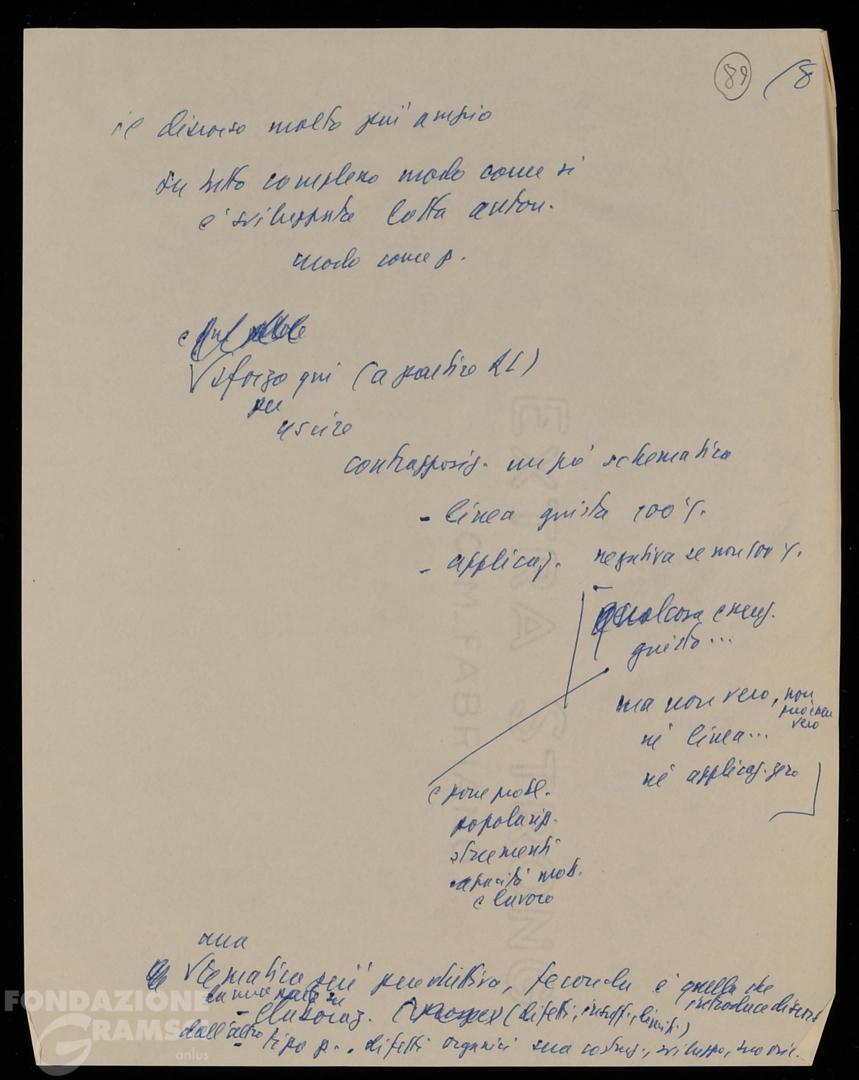 89 /8
il discorso molto più ampio
su tutto complesso modo come si
è sviluppata lotta anton.
modo come p.
e
sforzo qui (a partire RL)
per
uscire
contrapposiz. un po' schematica
- linea giusta 100%.
- applicaz. negativa se non 100%.
qualcosa c'è
giusto...
ma non vero, non
può esser
vero
né linea...
né applicaz. zero
e pone probl.
popolariz.
strumenti
capacità mob.
e lavoro
una
tematica più produttiva, feconda è quella che
introduce discorso
da una parte su
- elaboraz. (difetti, insuff., limiti)
dall'altro
- tipo p., difetti organici sua costruz., sviluppo,
FONDAZIONE
GRAMSCI
onlus
EXTRA STRONG
FABRIANO